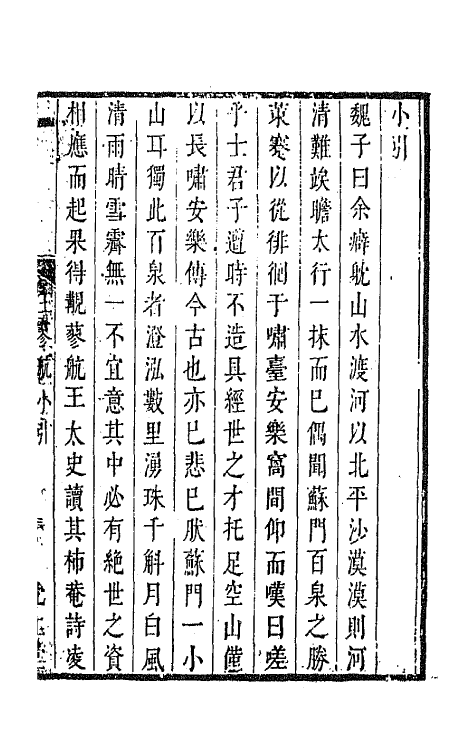 小引
魏子曰余癖耽山水渡河以北平沙漠漠則河
清難竢瞻太行一抹而已偶聞蘇門百泉之勝
蓃寒以從徘徊于嘯臺安樂窩間仰而嘆曰嗟
乎士君子遭時不造具經世之才托足空山僅
以長嘯安樂傳今古也亦已悲已肰蘇門一小
山耳獨此百泉者澄泓數里湧珠千斛月白風
清雨晴雪霽無一不宜意其中必有絕世之資
相應而起果得覯蓼航王太史讀其柿菴詩凌
小引